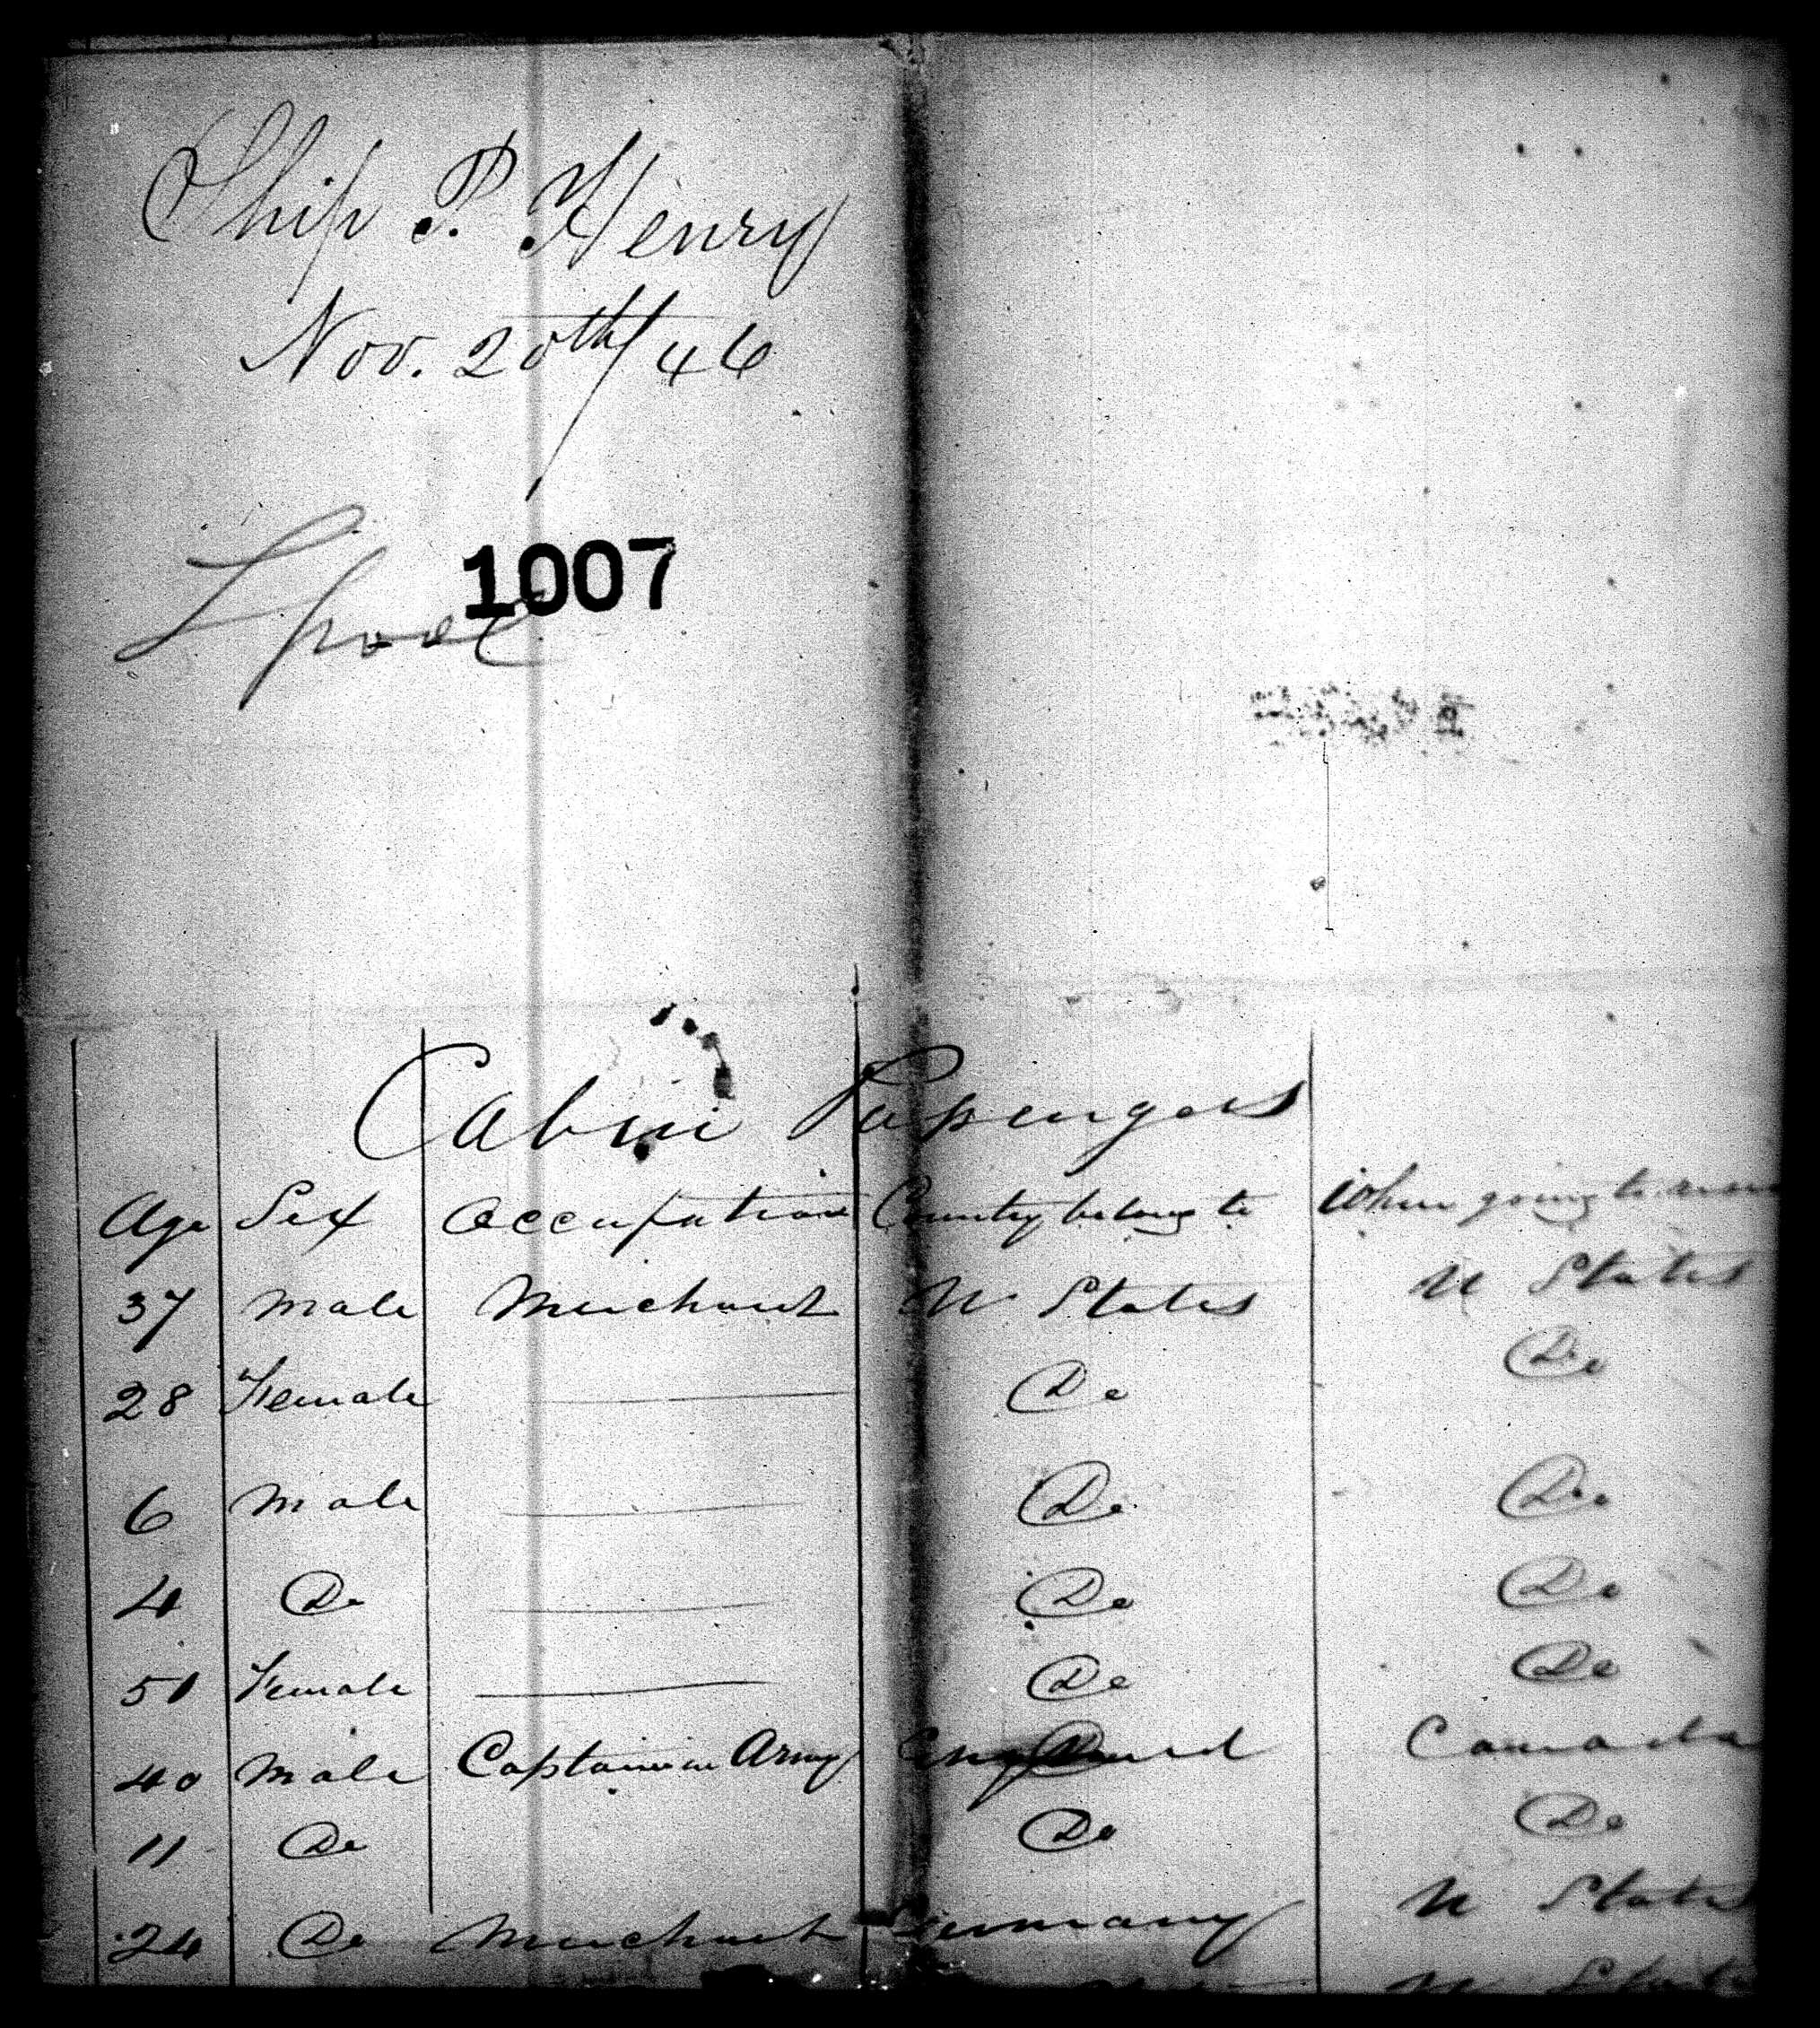 Ship P. Henry
Nov. 20th/46
1007
Lpool
Cabin Passengers
Age Sex Occupation Country belong to Where going to
37 Male Merchant U States U States
28 Female Do Do
6 Male Do Do
4 Do Do Do
51 Female Do Do
40 Male Captain in Army England Canada
11 Do Do Do
24 Do Merchant Germany U States
U States